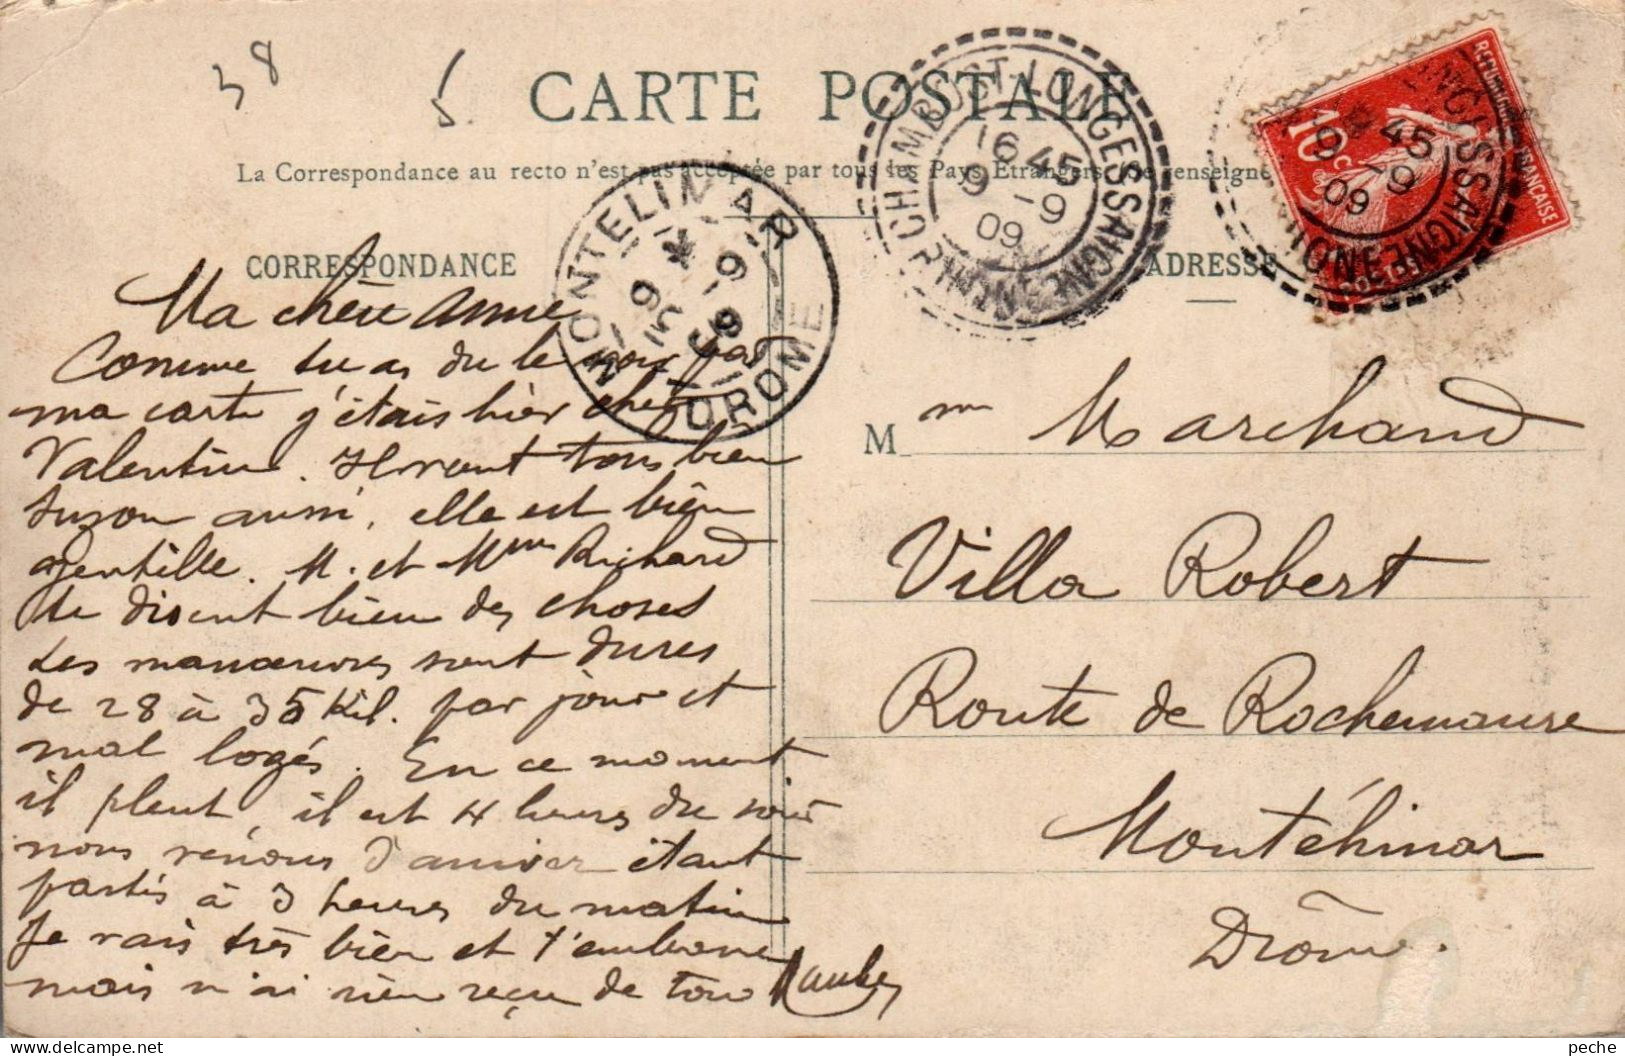 38
CARTE POSTALE
La Correspondance au recto n'est pas acceptée par tous les Pays Etrangers (Se renseigne
CORRESPONDANCE
ADRESSE
CHAMBOST-LONGESSAIGNE
16 45
9 -9
09
RHONE
REPUBLIQUE FRANÇAISE
10 c
POSTES
NGESSAIGNE
9 45
9 -9
09
RHONE
MONTELIMAR
DROME
9 -9
09
Ma chère Anne
Comme tu as du le voir par
ma carte j'étais hier chez
Valentin. Ils vont tous bien
Suzon aussi, elle est bien
gentille. M. et Mme Richard
te disent bien des choses
Les manœuvres sont dures
de 28 à 35 Kil. par jour et
mal logés. En ce moment
il pleut, il est 4 heures du soir
nous venons d'arriver étant
partis à 3 heures du matin
Je vais très bien et t'embrasse
mais n'ai rien reçu de toi
Mme Marchand
Villa Robert
Route de Rochemaure
Montélimar
Drôme.
peche